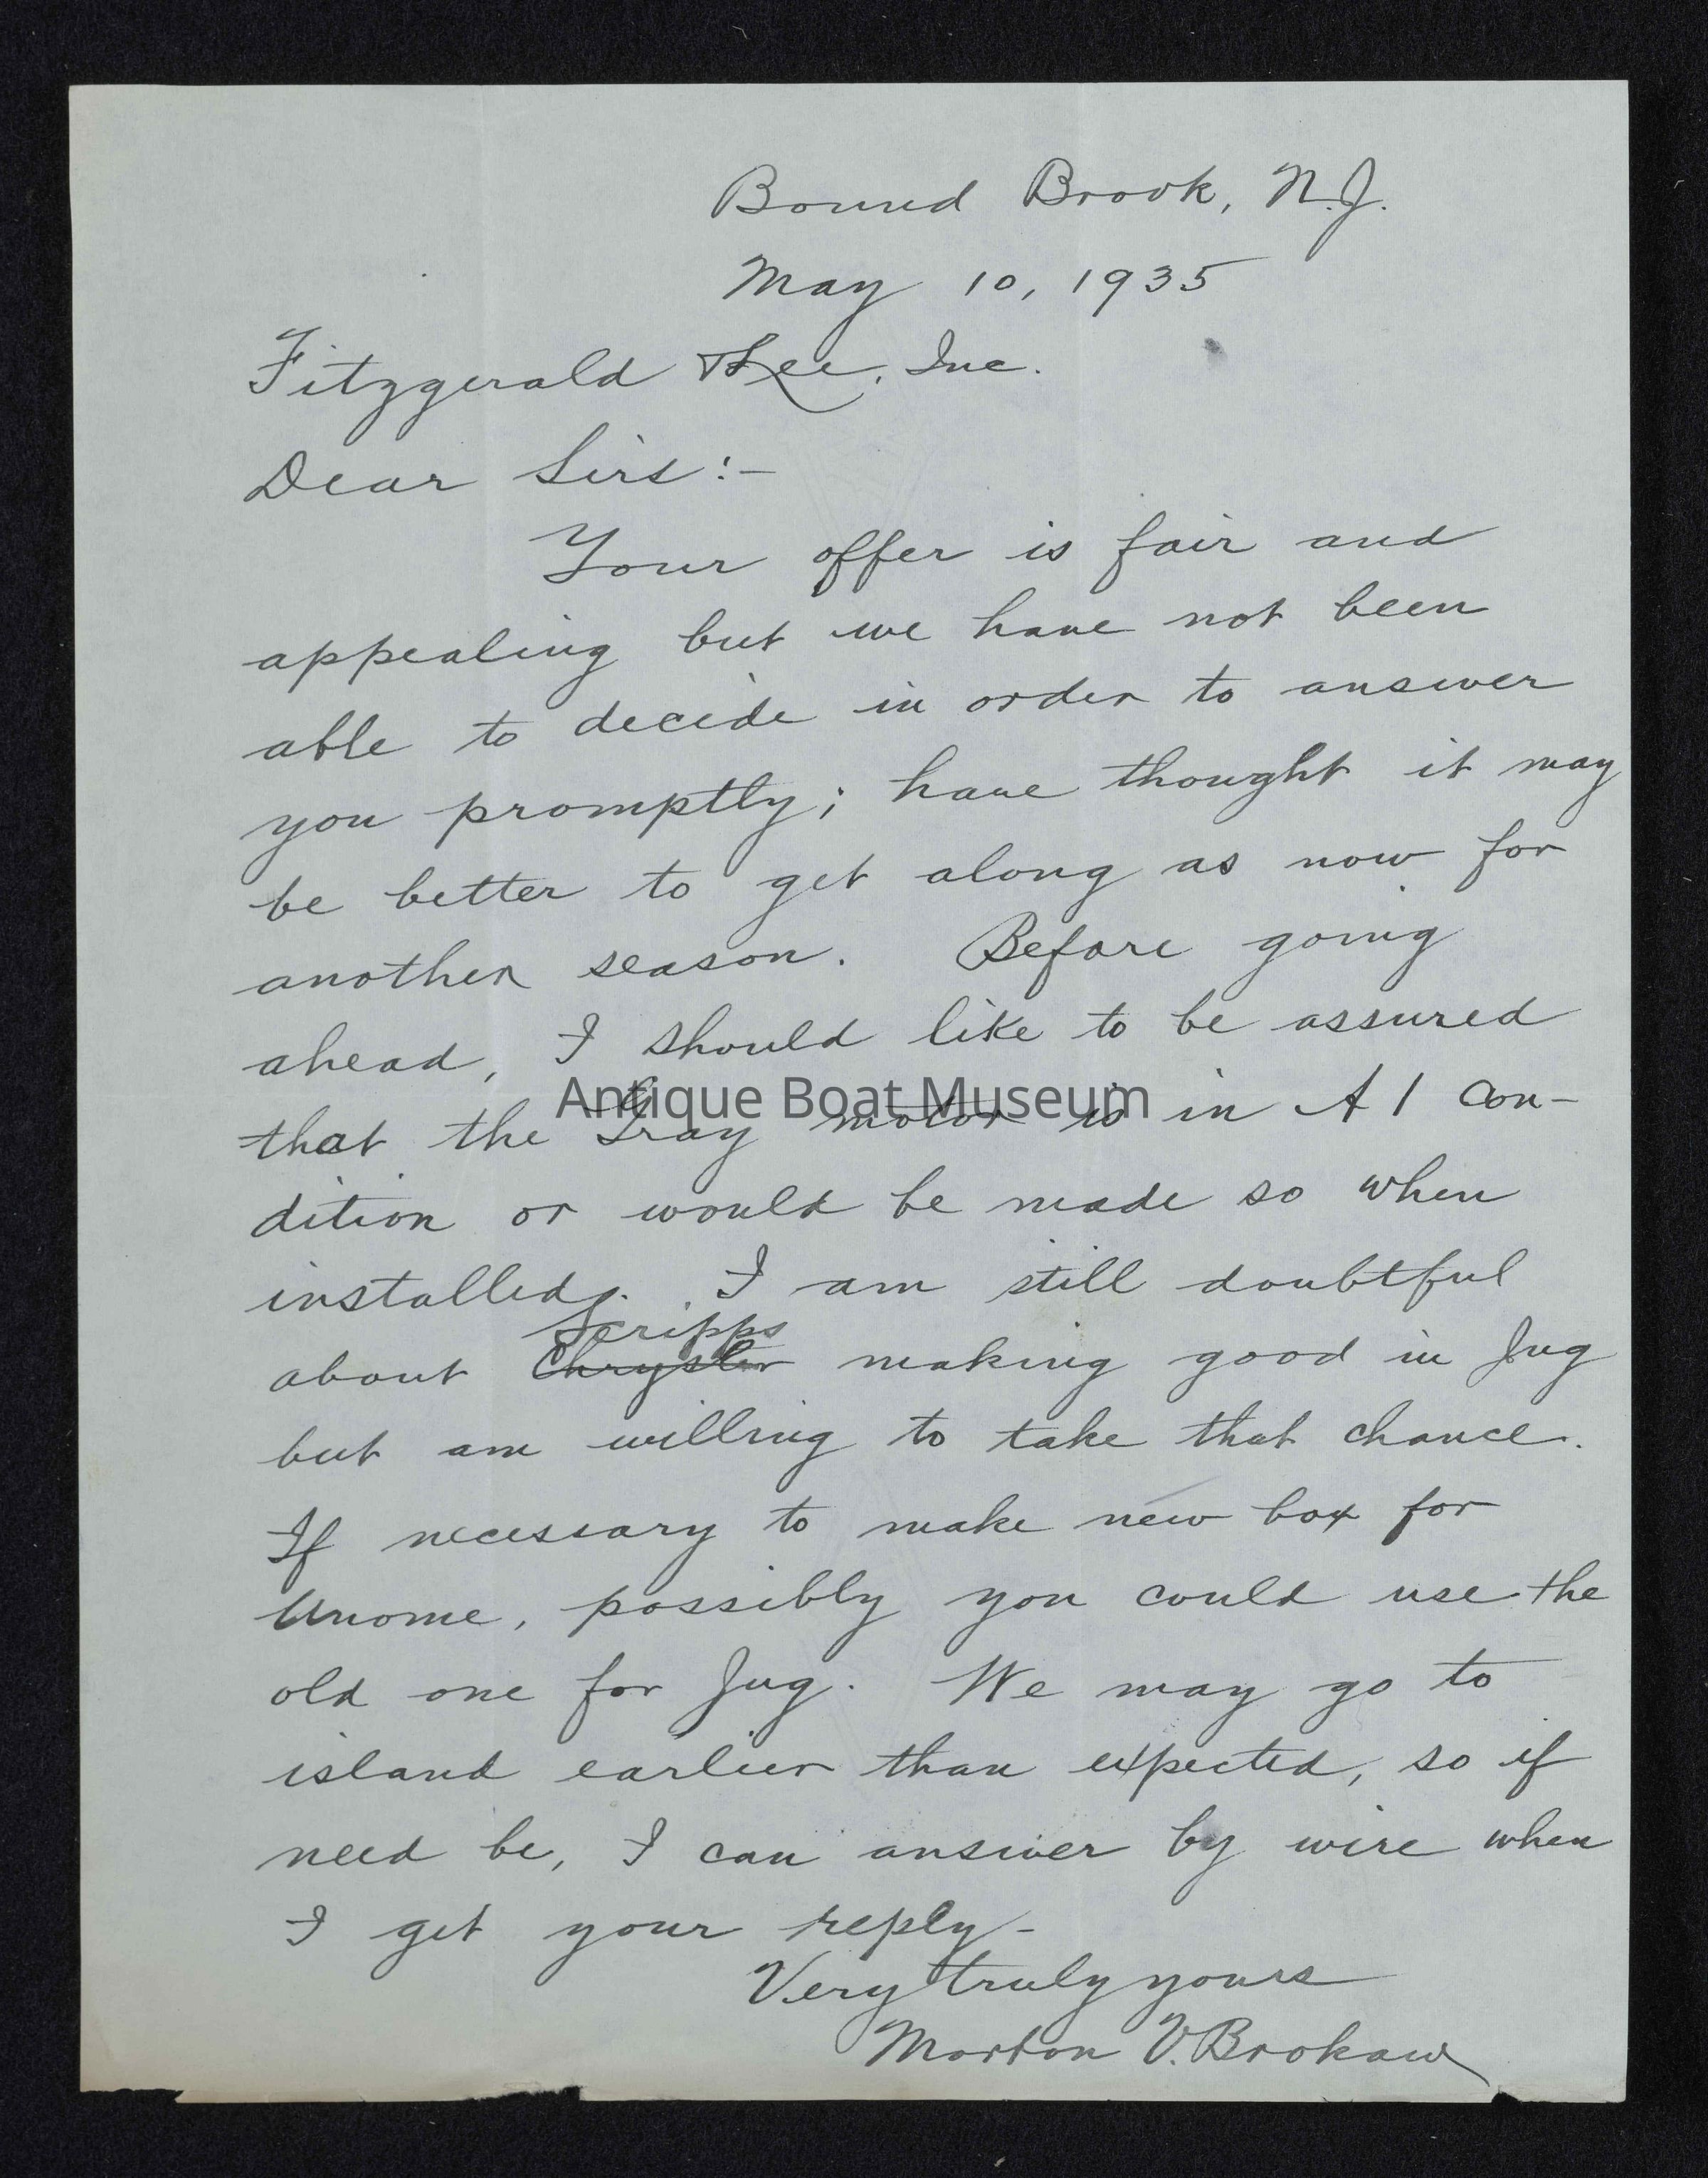 Bound Brook, N.J.
May 10, 1935
Fitzgerald & Lee, Inc.
Dear Sirs:-
Your offer is fair and
appealing but we have not been
able to decide in order to answer
you promptly; have thought it may
be better to get along as now for
another season. Before going
ahead, I should like to be assured
Antique Boat Museum
that the Gray motor is in A 1 con-
dition or would be made so when
installed. I am still doubtful
Scripps
about Chrysler making good in Jug
but am willing to take that chance.
If necessary to make new box for
Unome, possibly you could use the
old one for Jug. We may go to
island earlier than expected, so if
need be, I can answer by wire when
I get your reply-
Very truly yours
Morton V. Brokaw